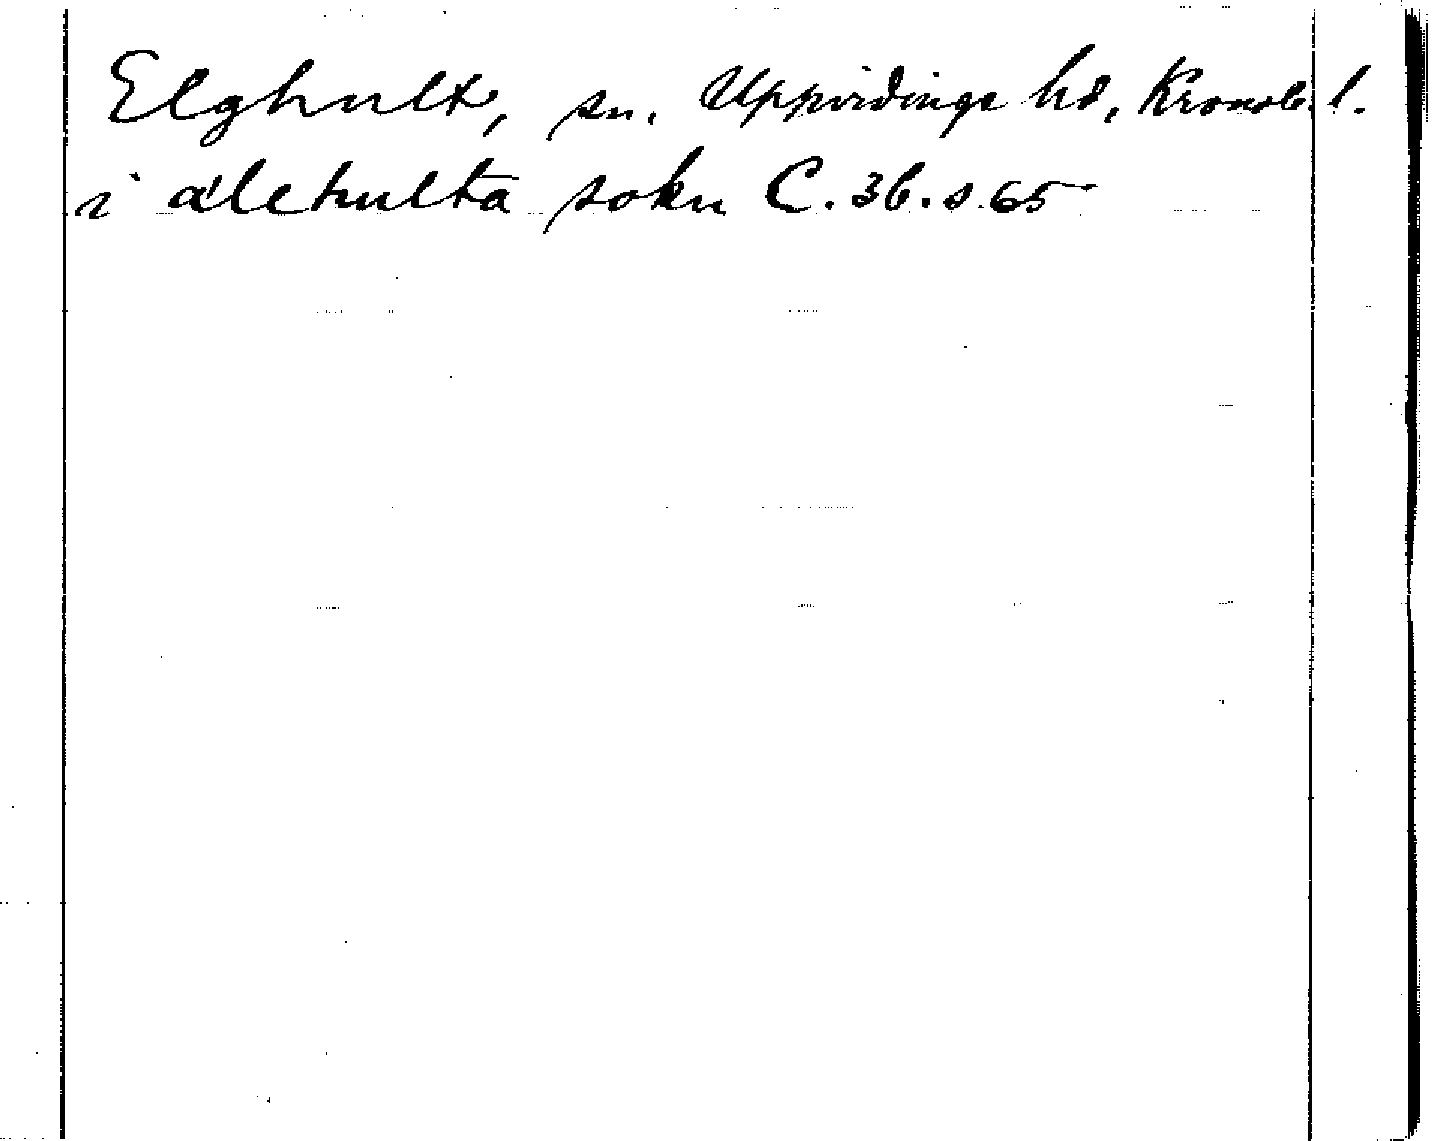 Elghult, sn. Uppvidinge hd, Kronob. l.
i älehulta sokn C. 36. s. 65